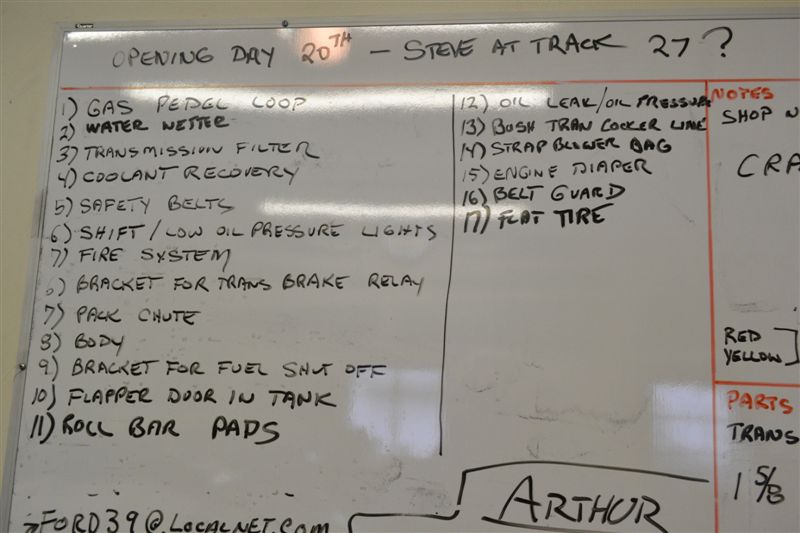 OPENING DAY 20TH - STEVE AT TRACK 27?
1) GAS PEDEL LOOP
2) WATER NETTER
3) TRANSMISSION FILTER
4) COOLANT RECOVERY
5) SAFETY BELTS
6) SHIFT / LOW OIL PRESSURE LIGHTS
7) FIRE SYSTEM
6) BRACKET FOR TRANS BRAKE RELAY
7) PACK CHUTE
8) BODY
9) BRACKET FOR FUEL SHUT OFF
10) FLAPPER DOOR IN TANK
11) ROLL BAR PADS
12) OIL LEAK/OIL PRESSURE
13) BUSH TRAN COOLER LINE
14) STRAP BLOWER BAG
15) ENGINE DIAPER
16) BELT GUARD
17) FLAT TIRE
NOTES
SHOP N
CRA
RED
YELLOW
PARTS
TRANS
1 5/8
ARTHUR
FORD39@LOCALNET.COM